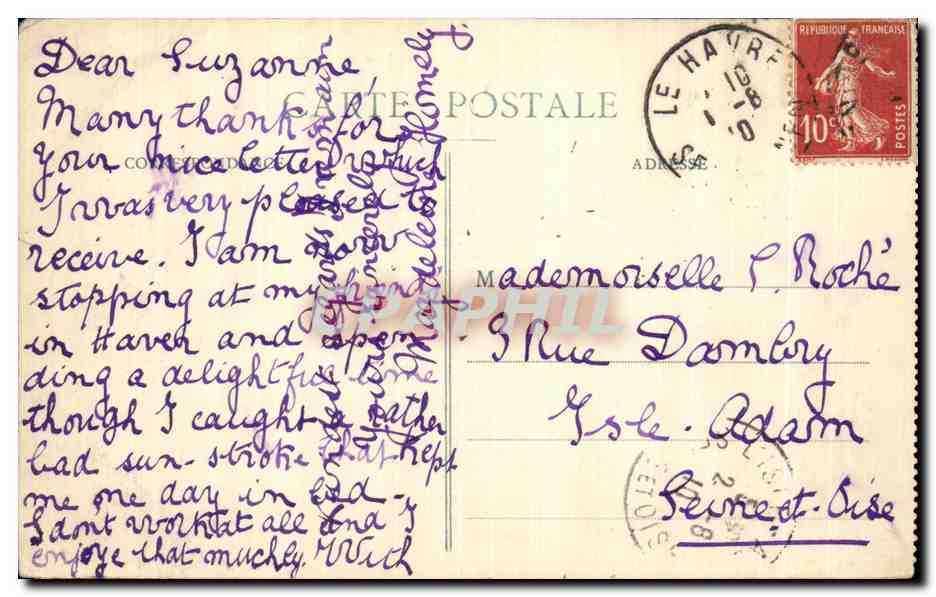 Dear Suzanne,
CARTE POSTALE
Many thanks for
CORRESPONDANCE
your nice letter which
I was very pleased to
receive. I am now
stopping at my friend
in Haven and spen
ding a delightful time
though I caught a rather
bad sun-stroke that kept
me one day in bed -
I dont work at all and I
enjoye that muchly. With
regards
Yours sincerely
Madeleine
ADRESSE
Mademoiselle S. Roché
9 Rue Dambry
Isle-Adam
Seine et-Oise
LE HAVRE
10 -8
RÉPUBLIQUE FRANÇAISE
10c
POSTES
ET OISE
CPAPHIL